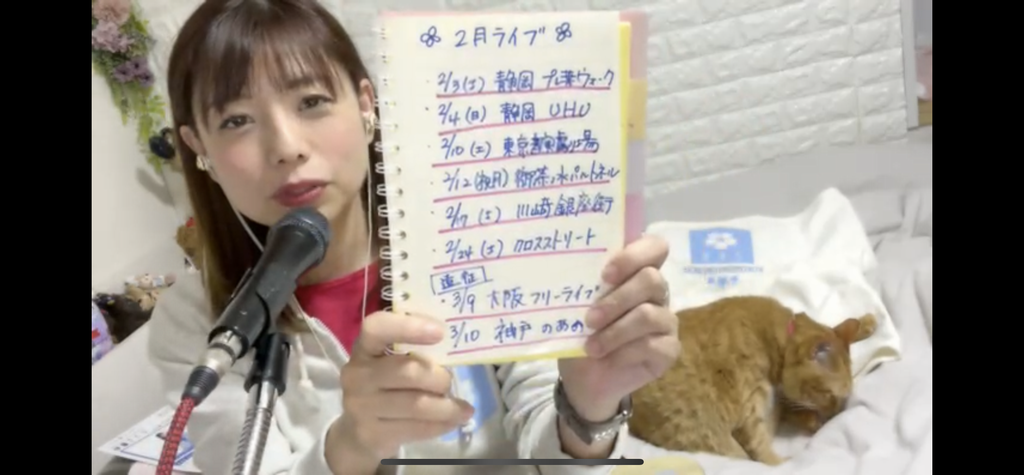 2月ライブ
・2/3(土) 静岡 プレ葉ウォーク
・2/4(日) 静岡 UHU
・2/10(土) 東京
・2/12(祝月) 御茶ノ水
・2/17(土) 川崎銀座街
・2/24(土) クロスストリート
遠征
・3/9 大阪 フリーライブ
・3/10 神戸 のあの